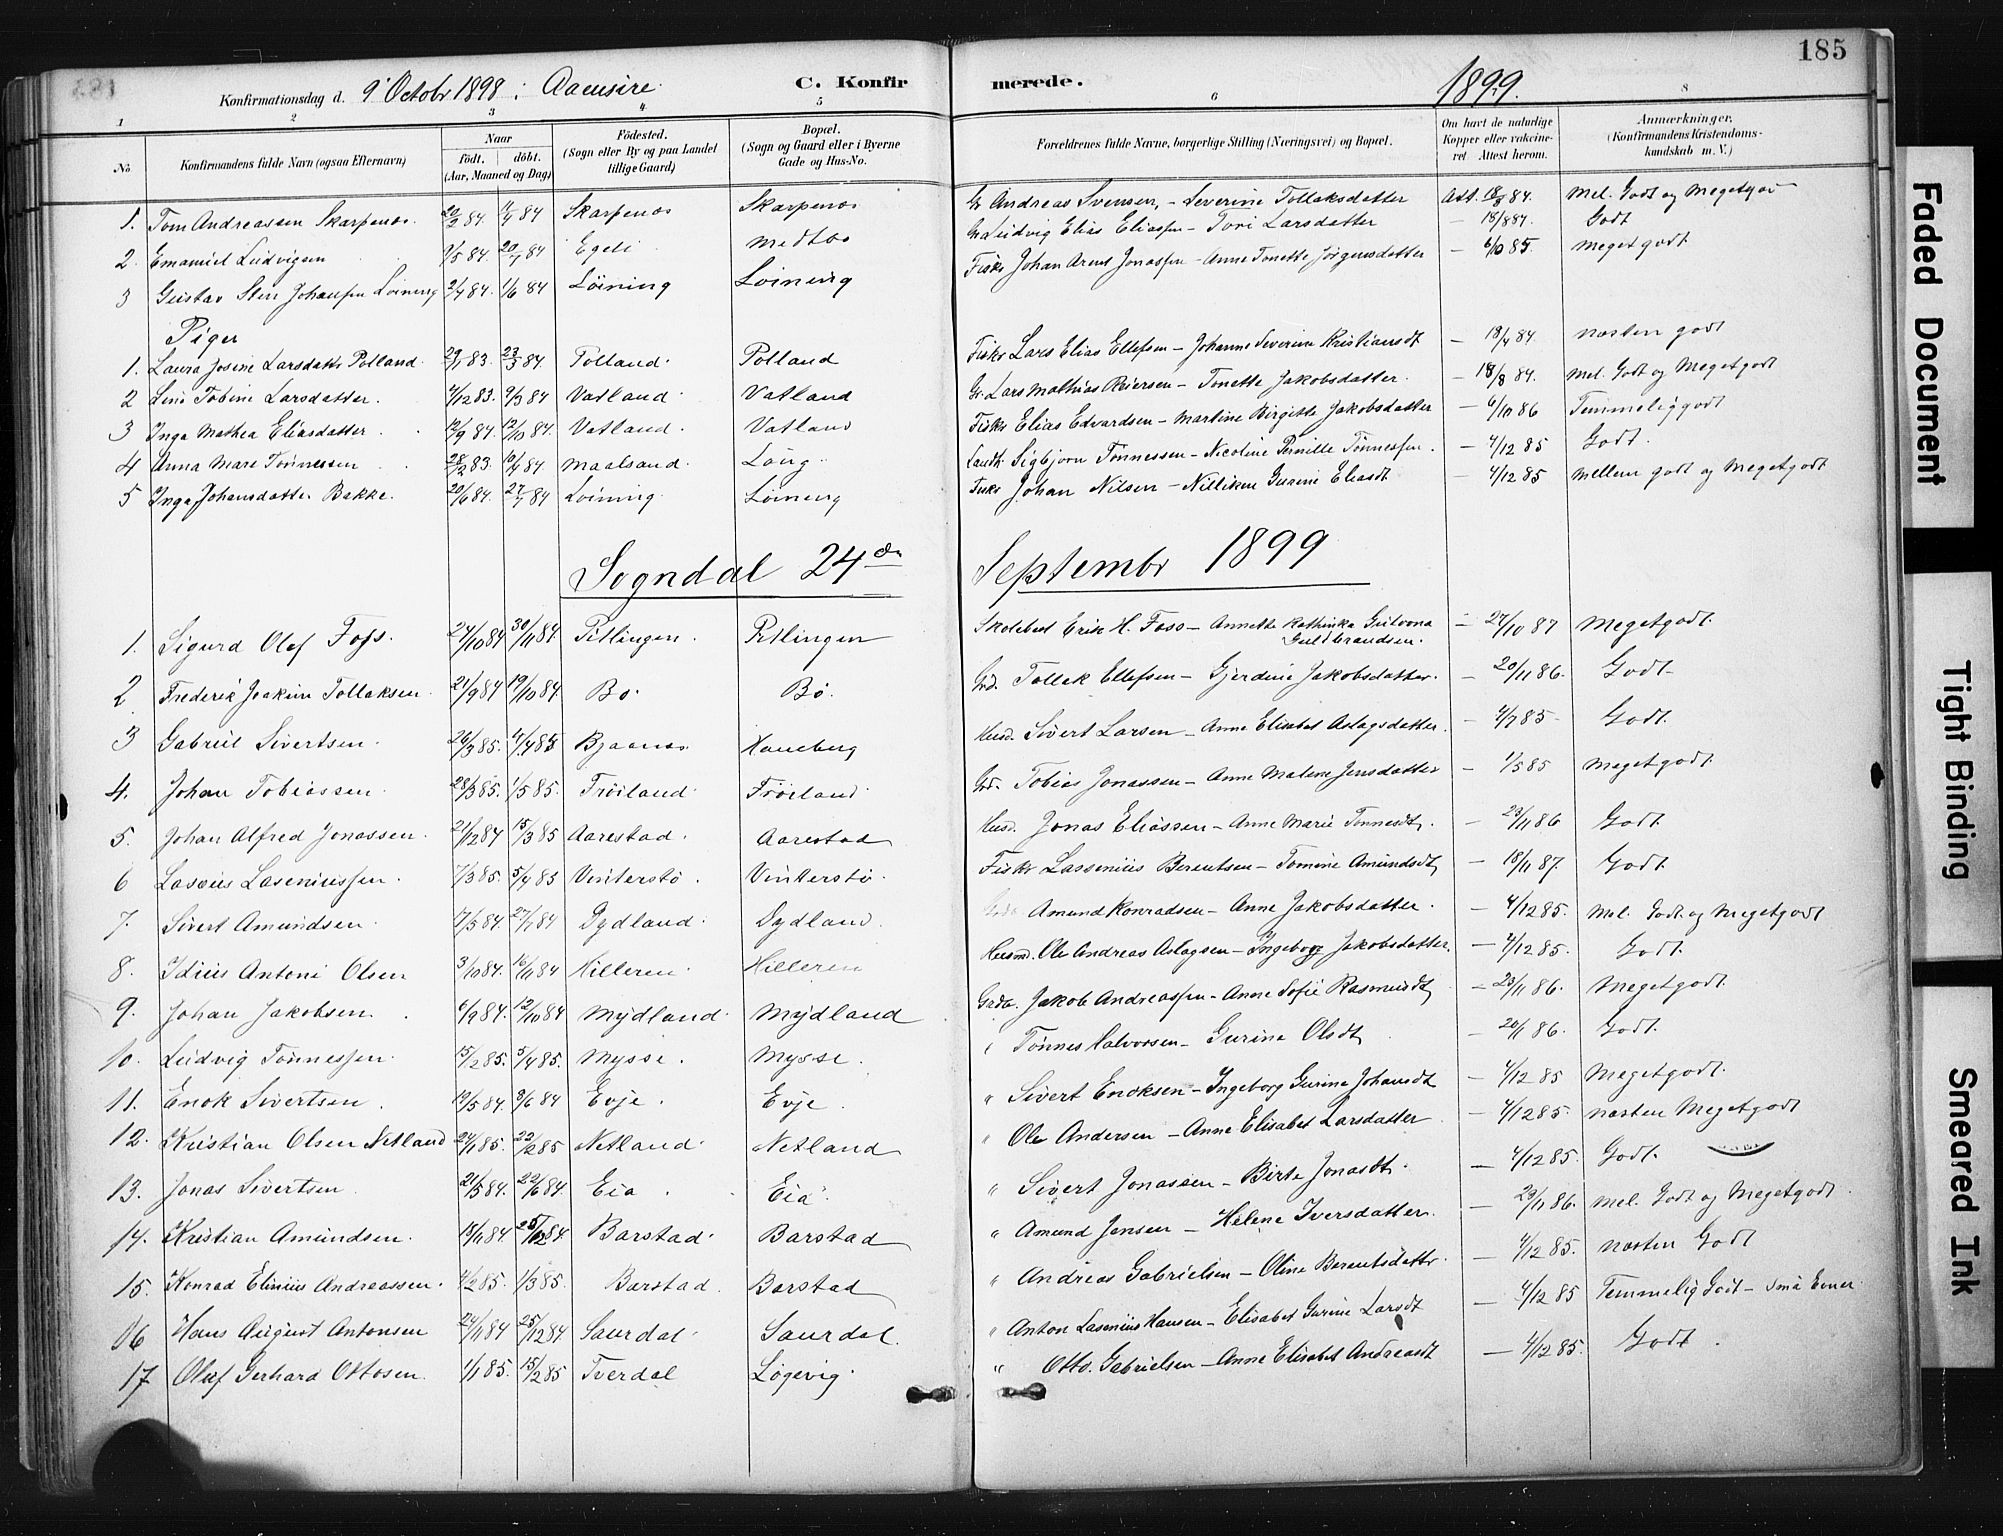 185
Konfirmationsdag d. 9' Octobr 1898 i Aaensire. C. Konfirmerede. 1899.
1 2 3 4 5 6 8
No Konfirmandens fulde Navn (ogsaa Efternavn) Naar født. døbt. (Aar, Maaned og Dag) Fødested. (Sogn eller By og paa Landet tillige Gaard) Bopæl. (Sogn og Gaard eller i Byerne Gade og Hus-No. Forældrenes fulde Navne, borgerlige Stilling (Næringsvei) og Bopæl. Om havt de naturlige Kopper eller vakcineret Attest herom. Anmærkninger. (Konfirmandens Kristendomskundskab m. V.)
1. Tom Andreassen Skarpenæs 84. 84 Skarpenæs Skarpenæs Gr Andreas Svensen, - Severine Tollaksdatter Att. 18/8 84. Mel. Godt og Megetgodt
2. Emanuel Ludvigsen 9/5 84. 20/7 84 Egeli Medbø Ludvig Elias Eliassen - Tori Larsdatter - 18/8 84. Godt
3 Gustav Sten Johansen Loining 2/4 84. 1/6 84 Løining Loining Fisk. Johan Arent Jonassen - Anne Tonette Jörgensdatter - 6/10 85. Meget godt
Piger
1. Laura Josine Larsdatter Potland 29/11 83. 23/3 84. Potland. Potland Fisk. Lars Elias Ellefsen - Johanne Severine Kristiansdt - 18/4 84. næsten godt
2 Lene Tobine Larsdatter. 4/12 83. 9/3 84 Vatland Vatland Gr. Lars Mathias Reiersen - Tonette Jakobsdatter. - 18/8 84. Mel. Godt og Megetgodt
3 Inga Mathea Eliasdatter. 12/9 84. 12/10 84. Vatland. Vatland Fisk. Elias Edvardsen - Martine Birgitte Jakobsdatter - 6/10 86 Temmelig godt
4 Anna Mare Tønnessen 28/12 83. 16/4 84. Maalsand. Løng. Landh. Sigbjorn Tønnessen - Nicoline Pernille Tønnessen. - 4/12 85 Godt.
5 Inga Johansdatter Bakke. 20/6 84. 27/7 84 Loining. Løining Fisk. Johan Nilsen - Nilliken Gurine Eliasdt - 4/12 85 Mellem godt og Megetgodt
Sogndal 24de Septembr 1899
1. Sigurd Olaf Foss. 27/10 84 30/11 84 Pitlingen. Pitlingen Skolebest Erik H. Foss - Annette Kathinka Gulvona Guldbrandsen. - 27/10 87 Megetgodt.
2 Frederik Joakim Tollaksen. 21/9 84 19/10 84. Bø Bø. Grd. Tollak Ellefsen - Gjerdine Jakobsdatter. - 20/11 86. Godt
3 Gabriel Sivertsen. 26/3 85. 4/4 85 Bjaanes Haneberg Husd. Sivert Larsen - Anne Elisabet Aslagsdatter. - 4/7 85 - Godt.
4. Johan Tobiassen. 28/3 85. 1/5 85. Frøiland Frøiland. Grd. Tobias Jonassen - Anne Malene Jensdatter - 1/5 85 Megetgodt.
5. Johan Alfred Jonassen. 21/12 84 15/3 85 Aarestad. Aarestad Husd. Jonas Eliassen - Anne Marie Tønnesdt. - 23/11 86 Godt
6 Laseius Laseniussen. 7/3 85. 5/4 85 Vinterstø. Vinterstø. Fisk. Lassenius Berentsen - Tomine Amundsdt - 18/11 87. Godt
7. Sivert Amundsen. 17/5 84. 27/7 84 Dydland. Dydland. Amund Konradsen - Anne Jakobsdatter. - 4/12 85. Mel. Godt og Megetgodt
8. Idius Antoni Olsen 3/10 84. 16/11 84 Hilleren. Hilleren Husmd. Ole Andreas Aslagsen - Ingeborg Jakobsdatter. - 4/12 85. Godt.
9. Johan Jakobsen. 6/9 84. 12/10 84 Mydland. Mydland Grdbr. Jakob Andreassen - Anne Sofie Rasmusdt - 23/11 86. Megetgodt.
10. Ludvig Tønnessen. 15/2 85. 5/4 85. Mysse. Mysse. Tønnes Halvorsen - Gurine Olsdt - 20/1 86. Godt.
11. Enok Sivertsen. 19/5 84. 9/6 84 Evje. Evje. " Sivert Enoksen - Ingeborg Gurine Johansdt - 4/12 85 Megetgodt.
12. Kristian Olsen Netland 24/1 85. 22/2 85 Netland. Netland " Ole Andersen - Anne Elisabet Larsdatter. - 4/12 85. næsten Megetgodt
13. Jonas Sivertsen 21/5 84. 22/6 84. Eia. Eia. " Sivert Jonassen - Birte Jonasdt. - 4/12 85. Godt.
14. Kristian Amundsen. 18/11 84 25/12 84 Barstad. Barstad " Amund Jensen - Helene Iversdatter. - 23/11 86. Mel. Godt og Megetgodt.
15. Konrad Elinius Andreassen. 4/2 85. 1/3 85. Barstad. Barstad " Andreas Gabrielsen - Oline Berentsdatter. - 4/12 85. næsten Godt
16 Hans August Antonsen 24/11 84 25/12 84. Saurdal Saurdal. " Anton Lasenius Hansen - Elisabet Gurine Larsdt - 4/12 85 Temmelig Godt - små Evner.
17 Olaf Gerhard Ottosen. 1/1 85. 15/2 85 Tverdal Løgevig. " Otto Gabrielsen - Anne Elisabet Andreasdt - 4/12 85. Godt.
Faded Document
Tight Binding
Smeared Ink